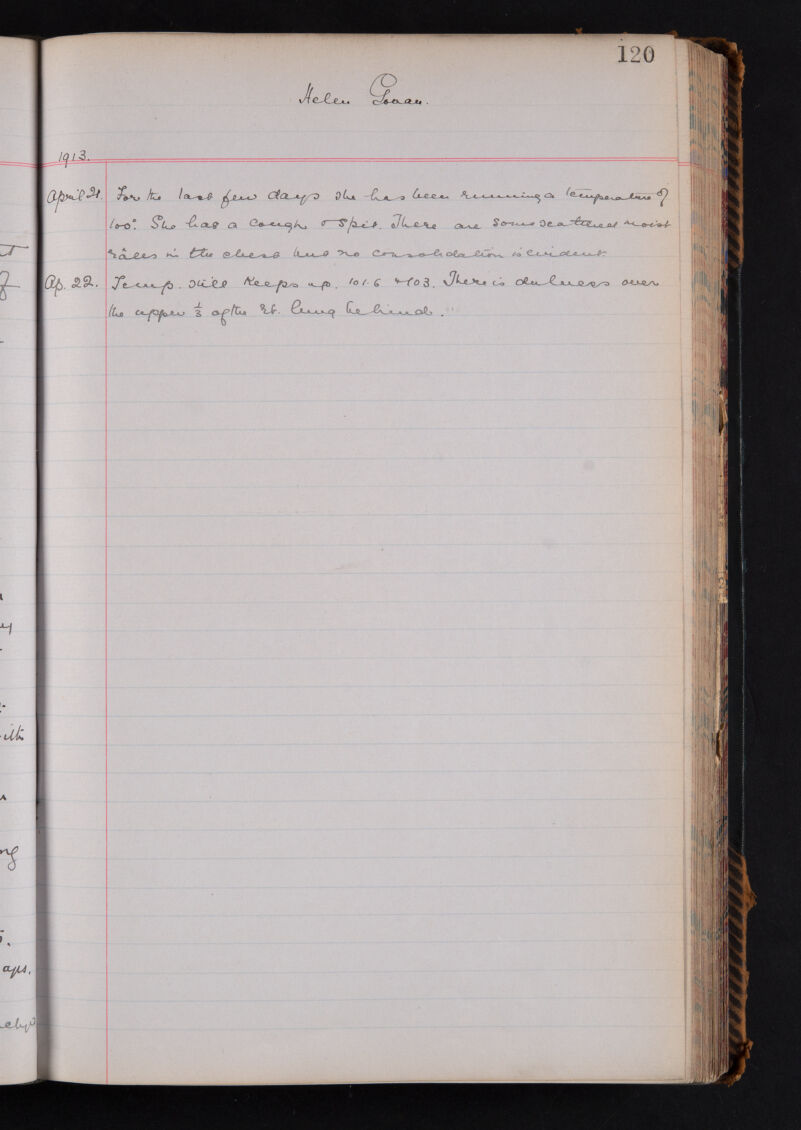 120
Helen
1913.
April 21. For the last few days she has been running a temperature of
100°. She has a cough & spit. There are some scattered moist
râles in the chest but no consolidation is evident.
Ap. 22. Temp. still keeps up. 101.6 & 103. There is dulness over
the upper 1/3 of the Rt. lung behind.
ith
ng
aps,